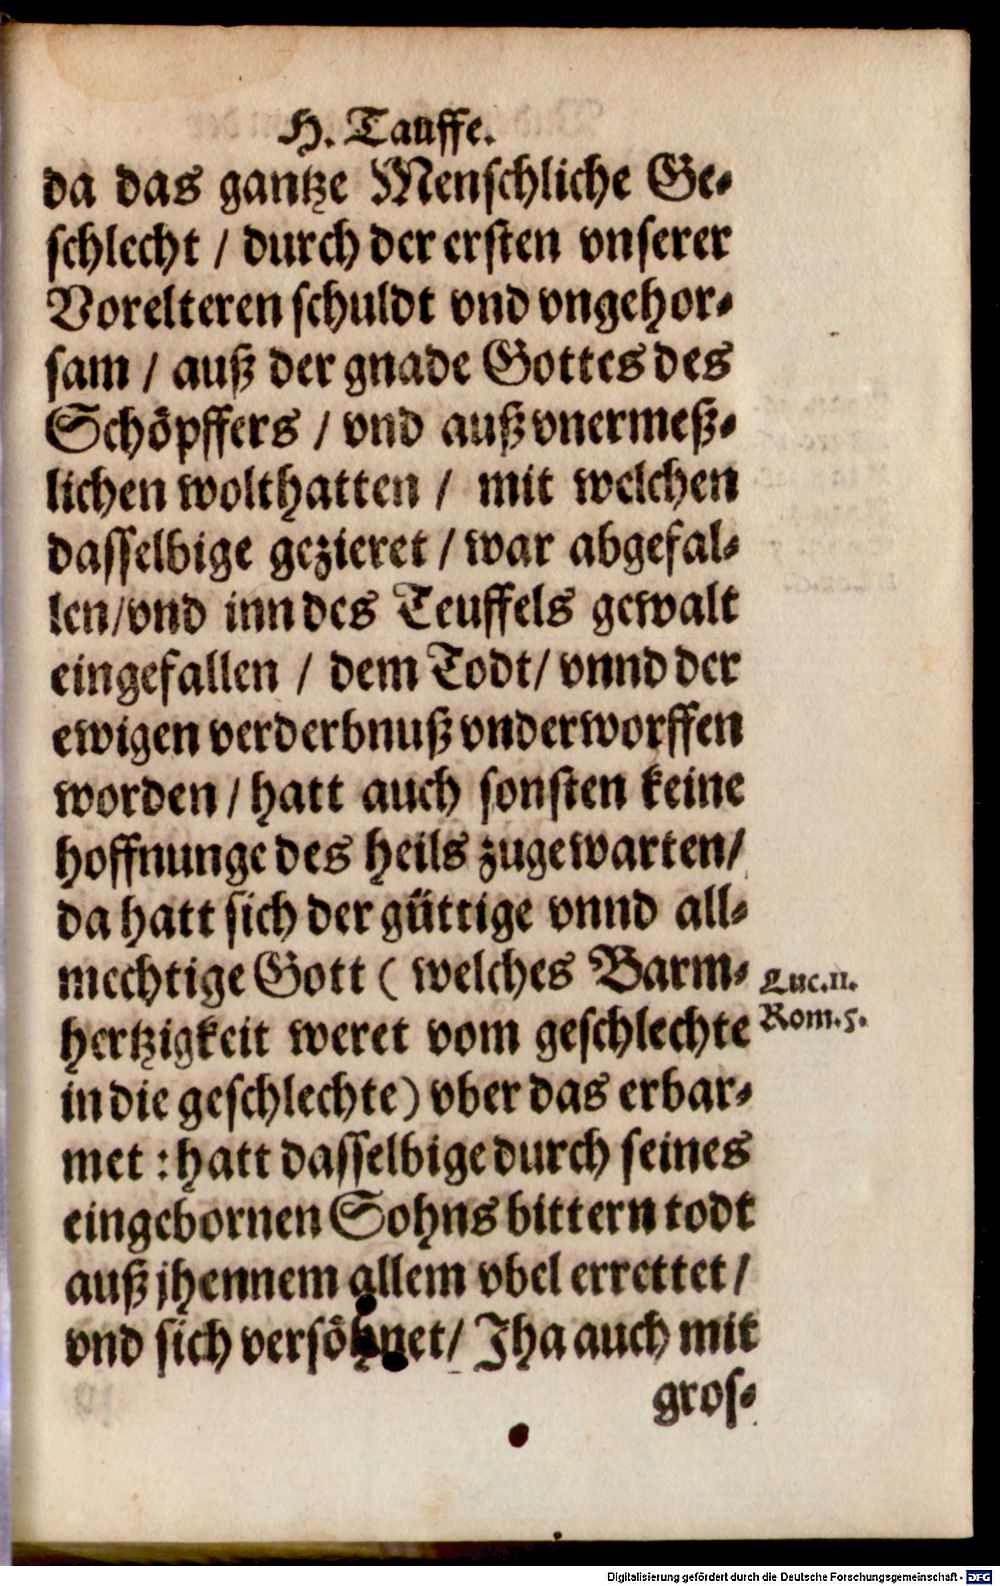 H. Tauffe.
da das gantze Menschliche Ge-
schlecht / durch der ersten vnserer
Vorelteren schuldt vnd vngehor-
sam / auß der gnade Gottes des
Schöpffers / vnd auß vnermeß-
lichen wolthatten / mit welchen
dasselbige gezieret / war abgefal-
len/vnd inn des Teuffels gewalt
eingefallen / dem Todt/ vnnd der
ewigen verderbnuß vnderworffen
worden / hatt auch sonsten keine
hoffnunge des heils zugewarten/
da hatt sich der güttige vnnd all-
mechtige Gott ( welches Barm-
hertzigkeit weret vom geschlechte
in die geschlechte) vber das erbar-
met : hatt dasselbige durch seines
eingebornen Sohns bittern todt
auß jhennem allem vbel errettet /
vnd sich versöhnet/ Jha auch mit
gros-
Luc.11.
Rom.5.
Digitalisierung gefördert durch die Deutsche Forschungsgemeinschaft - DFG